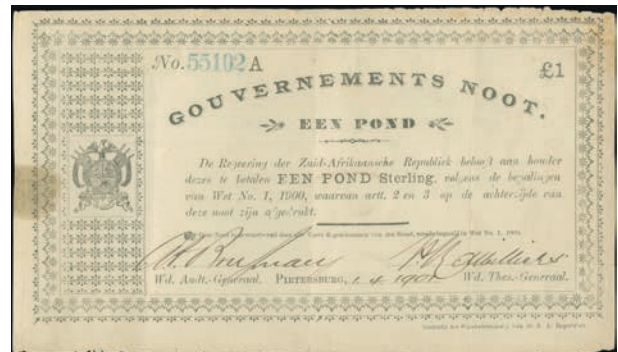 No. 55102 A
£1
GOUVERNEMENTS NOOT.
EEN POND
De Regeering der Zuid-Afrikaansche Republiek belooft aan houder
dezes te betalen EEN POND Sterling, volgens de bepalingen
van Wet No. 1, 1900, waarvan artt. 2 en 3 op de achterzijde van
deze noot zijn afgedrukt.
Wd. Audt.-Generaal. PIETERSBURG, 1.4.1901 Wd. Thes.-Generaal.